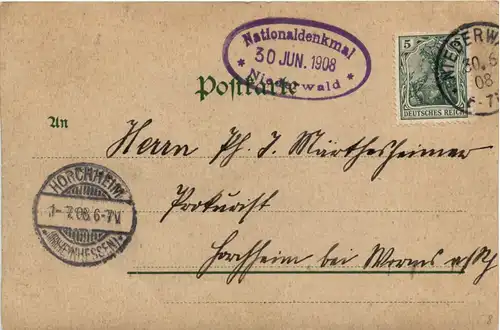 Nationaldenkmal
30 JUN. 1908
* Niederwald *
Postkarte
5
DEUTSCHES REICH
NIEDERW
30.6
08
6-7V
An
Herrn Ph. J. Märthesheimer
Prokurist
Horchheim bei Worms a/Rh
HORCHHEIM
1-7.08.6-7V.
(RHEINHESSEN)